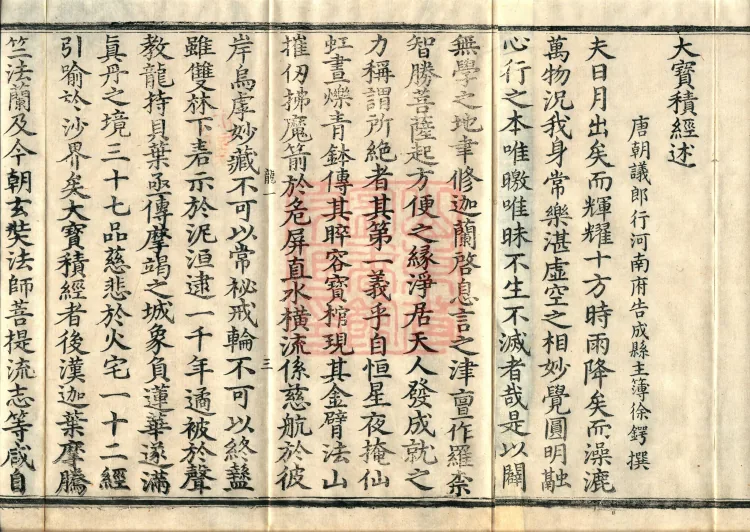 大寶積經述
唐朝議郎行河南府告成縣主簿徐鍔撰
夫日月出矣而輝耀十方時雨降矣而澡漉
萬物況我身常樂湛虛空之相妙覺圓明融
心行之本唯曒唯昧不生不滅者哉是以闢
無學之地聿修迦蘭啓息言之津亶作羅柰
智勝菩薩起方便之緣淨居天人發成就之
力稱謂所絶者其第一義乎自恒星夜掩仙
虹晝爍青鉢傳其睟容寶棺現其金臂法山
摧仞拂魔箭於危屏直水橫流係慈航於彼
龍一
三
岸烏庨妙藏不可以常祕戒輪不可以終盭
雖雙林下若示於泥洹逮一千年遹被於聲
教龍持貝葉亟傳摩竭之城象負蓮華遂滿
眞丹之境三十七品慈悲於火宅一十二經
引喻於沙界矣大寶積經者後漢迦葉摩騰
竺法蘭及今朝玄奘法師菩提流志等咸自